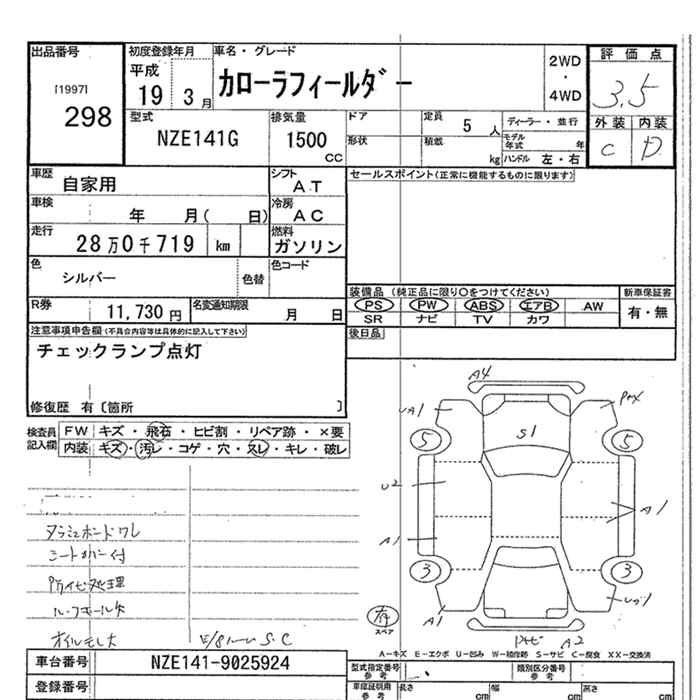 出品番号
[1997]
298
初度登録年月
平成
19 3月
車名・グレード
カローラフィールダー
2WD
・
4WD
評価点
3.5
外装 内装
C D
型式
NZE141G
排気量
1500
CC
ドア
定員
5人
ディーラー・並行
形状
積載
kg
モデル年式
年
ハンドル 左・右
車歴
自家用
シフト
AT
車検
年 月( 日)
冷房
AC
走行
28万0千719 km
燃料
ガソリン
色
シルバー
色替
色コード
R券
11,730円
名変通知期限
月 日
セールスポイント(正常に機能するものに限ります)
装備品 (純正品に限り○をつけてください)
PS PW ABS エアB AW
SR ナビ TV カワ
新車保証書
有・無
後日品
注意事項申告欄(不具合内容等は具体的に記入して下さい)
チェックランプ点灯
修復歴 有〔箇所 〕
検査員記入欄
FW キズ・飛石・ヒビ割・リペア跡・×要
内装 キズ・汚レ・コゲ・穴・スレ・キレ・破レ
ダッシュボードワレ
シートカバー付
ルーフモール欠
オイルモレ大
S.C
A4
UA1
S1
5
5
U2
A1
A1
3
3
A1
有
スペア
A2
A-キズ E-エクボ U-凹み W-補修跡 S-サビ C-腐食 XX-交換済
車台番号
NZE141-9025924
登録番号
型式指定番号
参考
類別区分番号
参考
車庫証明用
参考
長さ
cm
幅
cm
高さ
cm